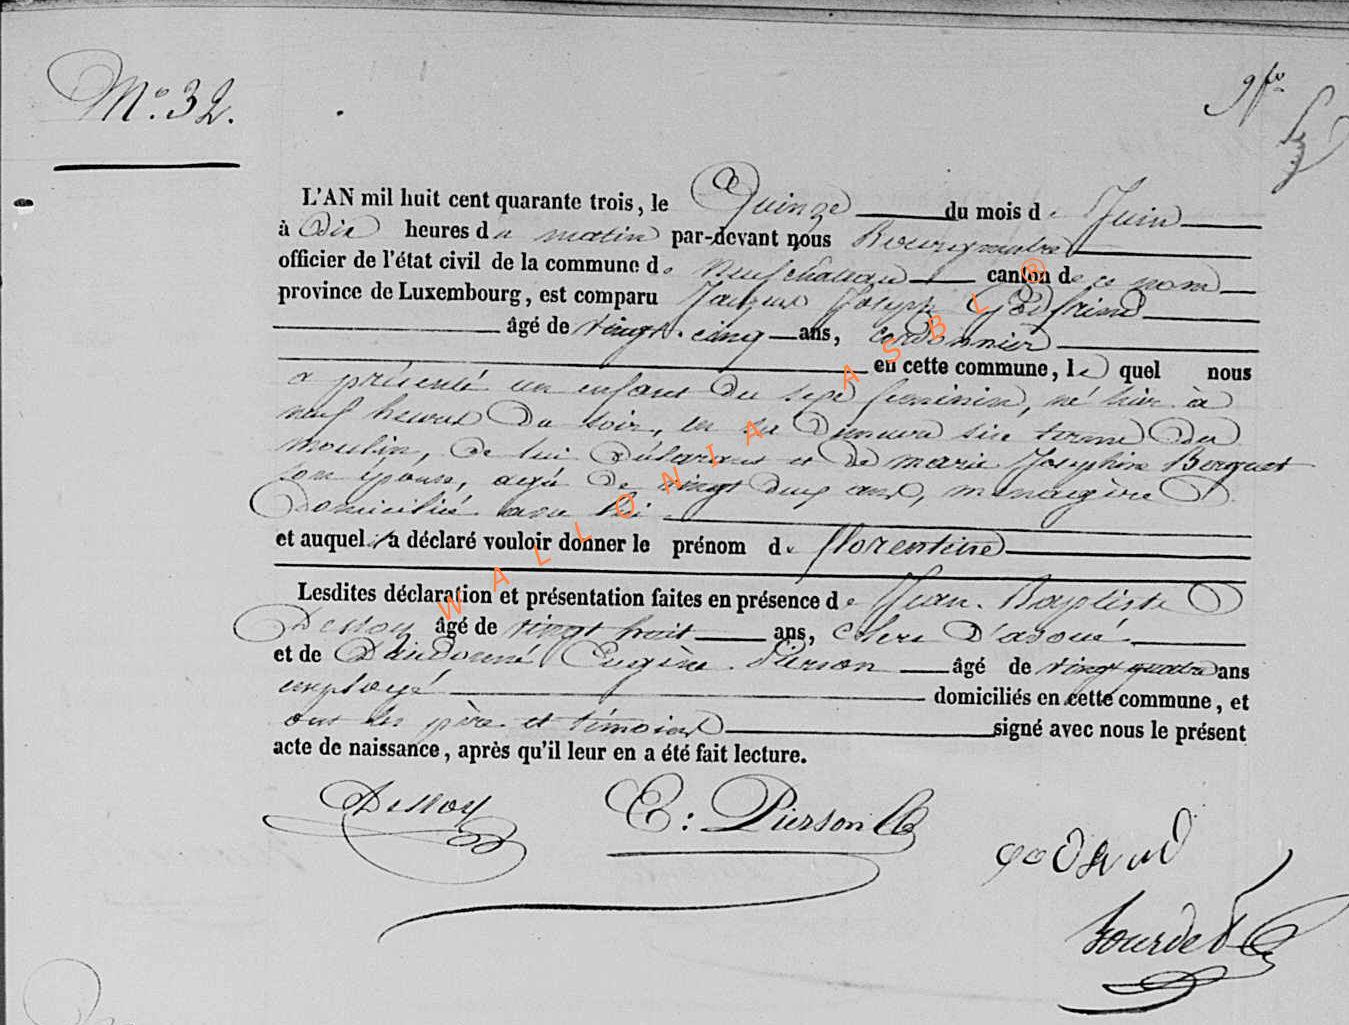 N.º 32.
L'AN mil huit cent quarante trois, le Quinze du mois de Juin
à Dix heures du matin par-devant nous Bourgmestre
officier de l'état civil de la commune de Neufchateau canton de ce nom
province de Luxembourg, est comparu Jacques Joseph Godfrind
âgé de vingt-cinq ans, cordonnier
en cette commune, le quel nous
a présenté un enfant du sexe feminin, né hier à
neuf heures du soir, en sa demeure sise terme du
moulin, de lui déclarant et de marie Josephine Borguet
son épouse, agée de vingt deux ans, menagère
Domiciliée avec lui
et auquel il a déclaré vouloir donner le prénom de florentine
Lesdites déclaration et présentation faites en présence de Jean-Baptiste
Dessoy âgé de vingt huit ans, clerc d'avoué
et de Dieudonné Eugène Pierson âgé de vingt quatre ans
employé domiciliés en cette commune, et
ont les père et témoins signé avec nous le présent
acte de naissance, après qu'il leur en a été fait lecture.
Dessoy E: Pierson
Bourdet
WALLONIA ASBL ®